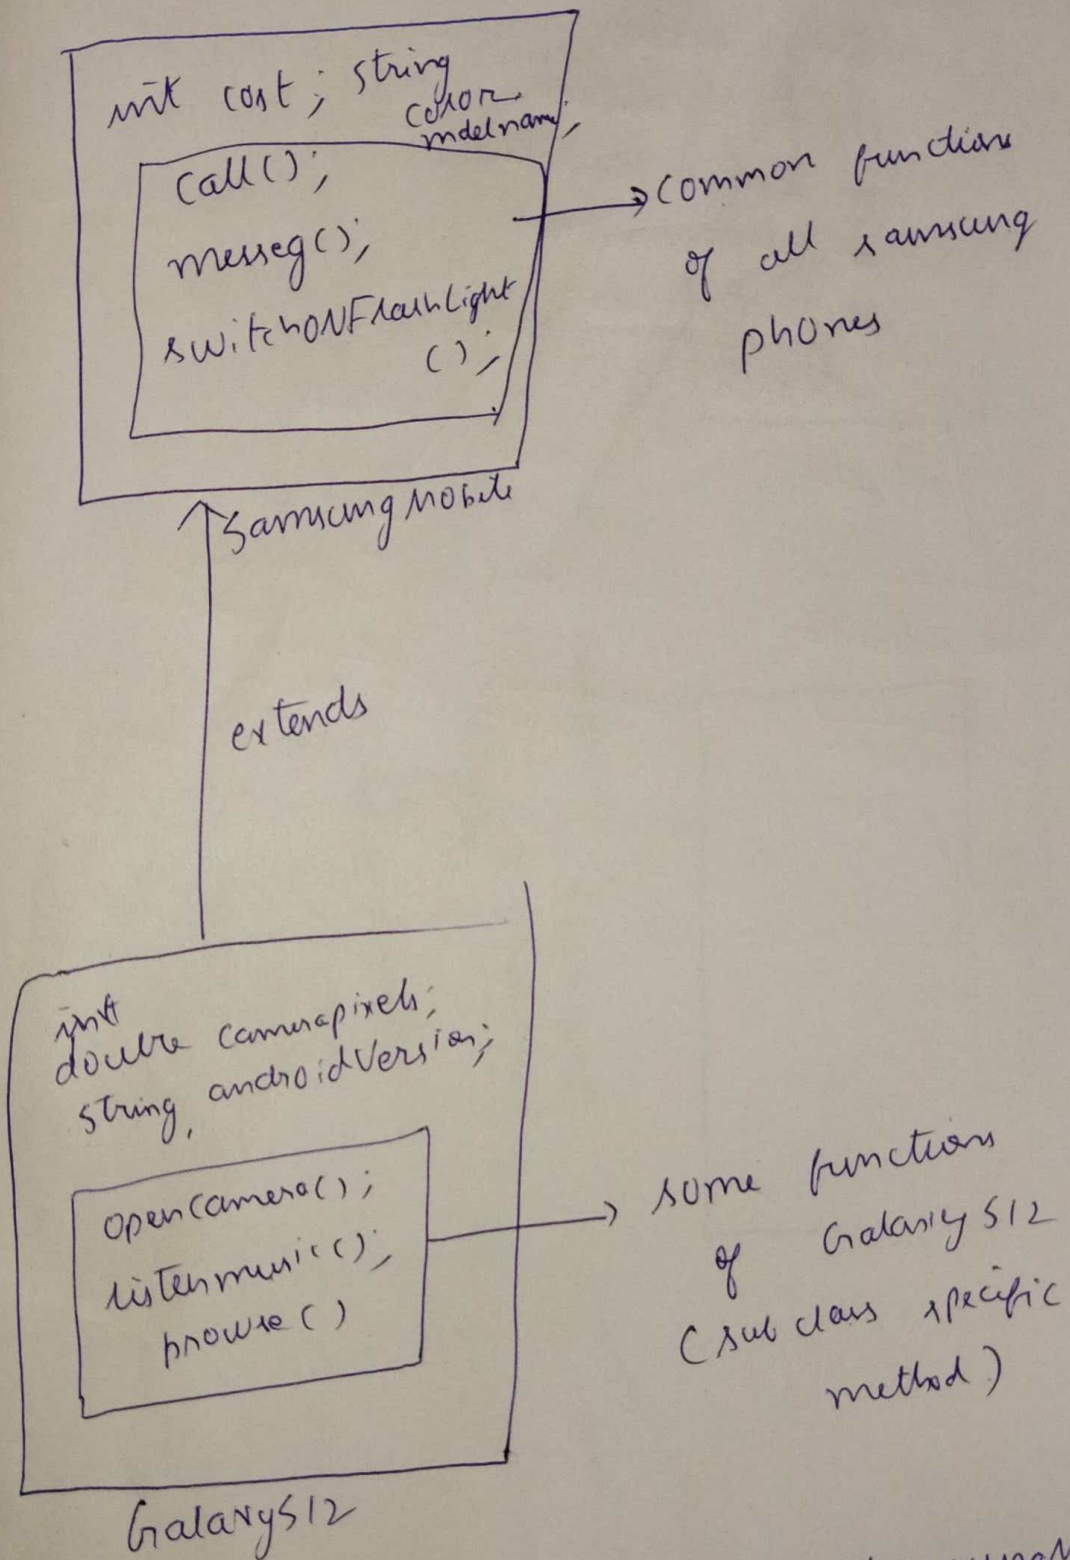 int cost; string
color,
mdelname;
call();
messeg();
switchONFlashLight
();
common functions
of all samsung
phones
SamsungMobile
extends
int
double camerapixels;
string, androidVersion;
opencamera();
listenmusic();
browse()
some functions
of GalaxyS12
(sub class specific
method)
GalaxyS12